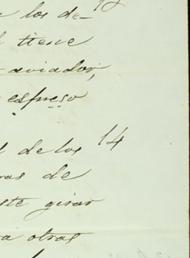 los de-
tiene
aviados,
espreso
de los 14
as de
este girar
a otras